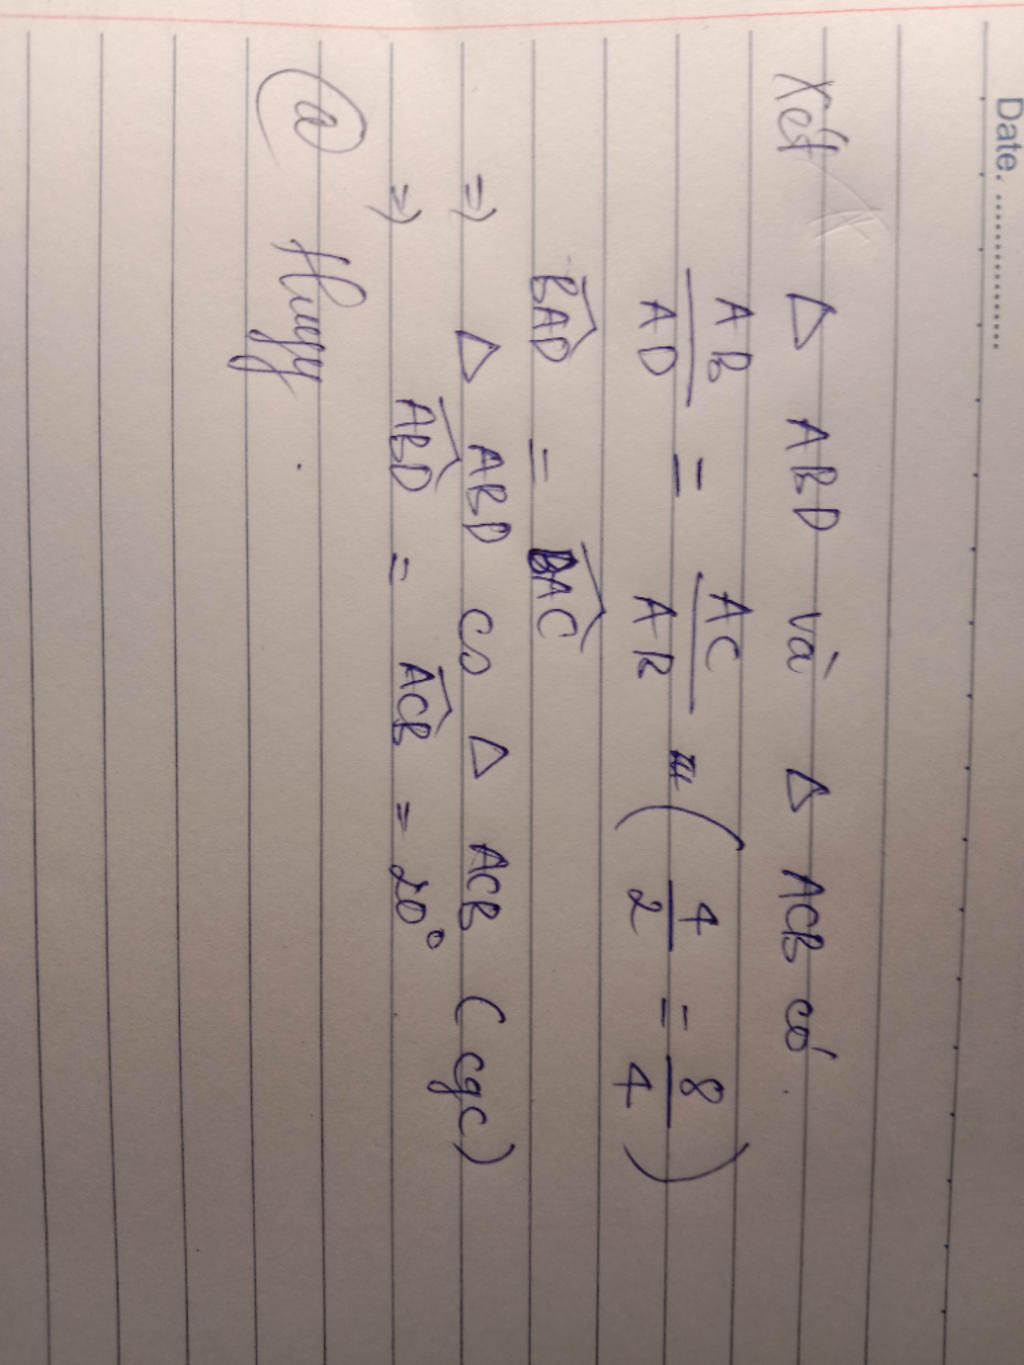 Date. ................
Xét Δ ABD và Δ ACB có
AB/AD = AC/AB = ( 4/2 = 8/4 )
BAD = BAC
=> Δ ABD ᔕ Δ ACB (cgc)
=> ABD = ACB = 20°